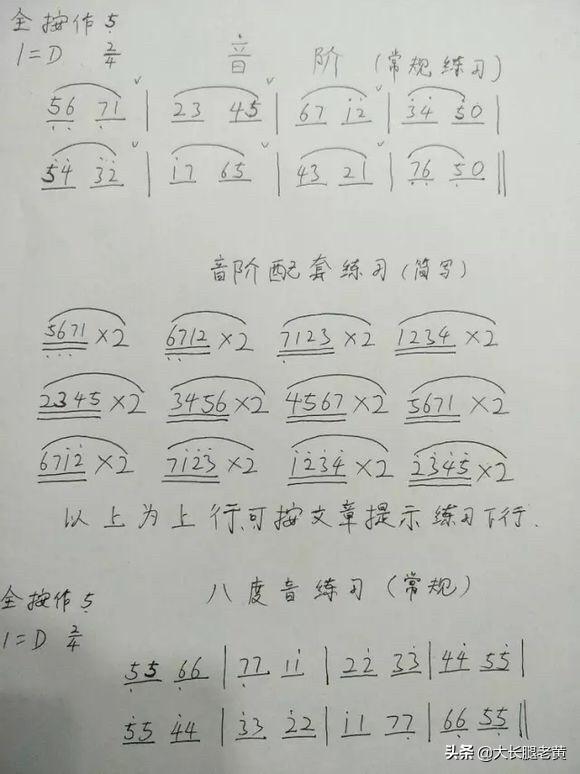 全按作 5̣
1=D 2/4 音 阶 (常规练习)
5̣6̣ 7̣1 | 23 45 | 67 1̇2̇ | 3̇4̇ 5̇0 |
5̇4̇ 3̇2̇ | 1̇7 65 | 43 21 | 7̣6̣ 5̣0 ‖
音阶配套练习(简写)
5̣6̣7̣1×2 6̣7̣12×2 7̣123×2 1234×2
2345×2 3456×2 4567×2 5671̇×2
671̇2̇×2 71̇2̇3̇×2 1̇2̇3̇4̇×2 2̇3̇4̇5̇×2
以上为上行,可按文章提示练习下行.
八度音练习(常规)
全按作 5̣
1=D 2/4
5̣5 6̣6 | 7̣7 11̇ | 22̇ 33̇ | 44̇ 55̇ |
5̇5 4̇4 | 3̇3 2̇2 | 1̇1 77̣ | 66̣ 55̣ ‖
头条 @大长腿老黄